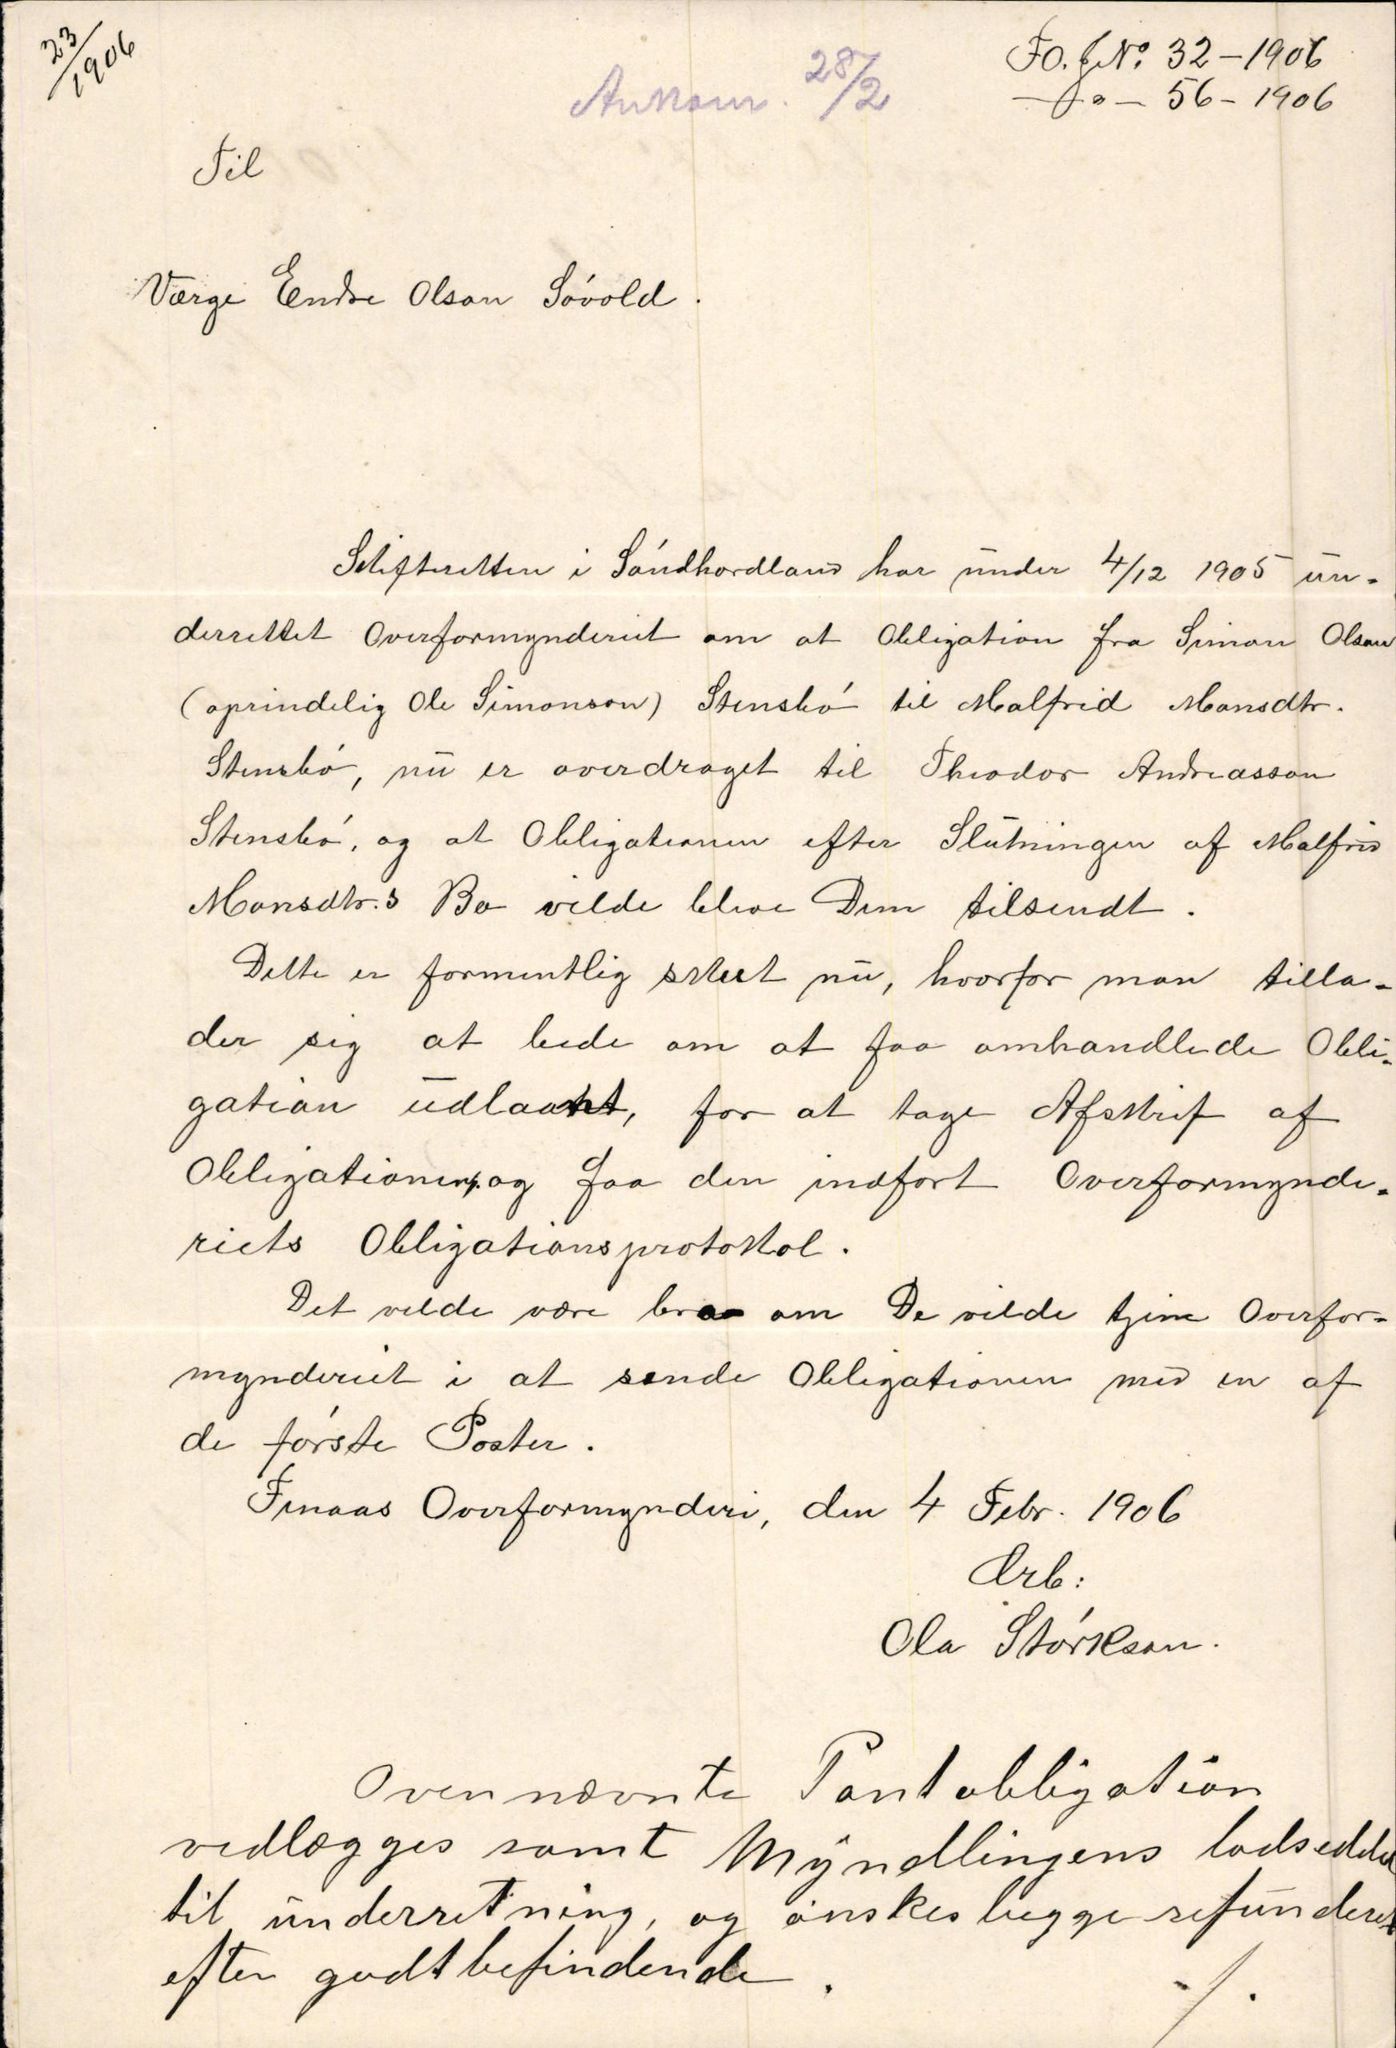 23/1906
Ankom. 28/2
FO. J No. 32 - 1906
— " — 56 - 1906
Til
Værge Endre Olson Søvold.
Skifteretten i Søndhordland har under 4/12 1905 un-
derrettet Overformynderiet om at Obligation fra Simon Olson
(oprindelig Ole Simonson) Stensbø til Malfrid Monsdtr.
Stensbø, nu er overdraget til Theodor Andreasson
Stensbø, og at Obligationen efter Slutningen af Malfrid
Monsdtr.s Bo vilde blive Dem tilsendt.
Dette er formentlig skeet nu, hvorfor man tilla-
der sig at bede om at faa omhandlede Obli-
gation udlaant, for at tage Afskrift af
Obligationen, og faa den indført Overformynde-
riets Obligationsprotokol.
Det vilde være bra om De vilde tjene Overfor-
mynderiet i at sende Obligationen med en af
de første Poster.
Finaas Overformynderi, den 4 Febr. 1906
Ærb:
Ola Størkson.
Ovennævnte Pantobligation
vedlægges samt Myndlingens lodseddel
til underretning, og ønskes begge refunderet
efter godtbefindende.
-/.